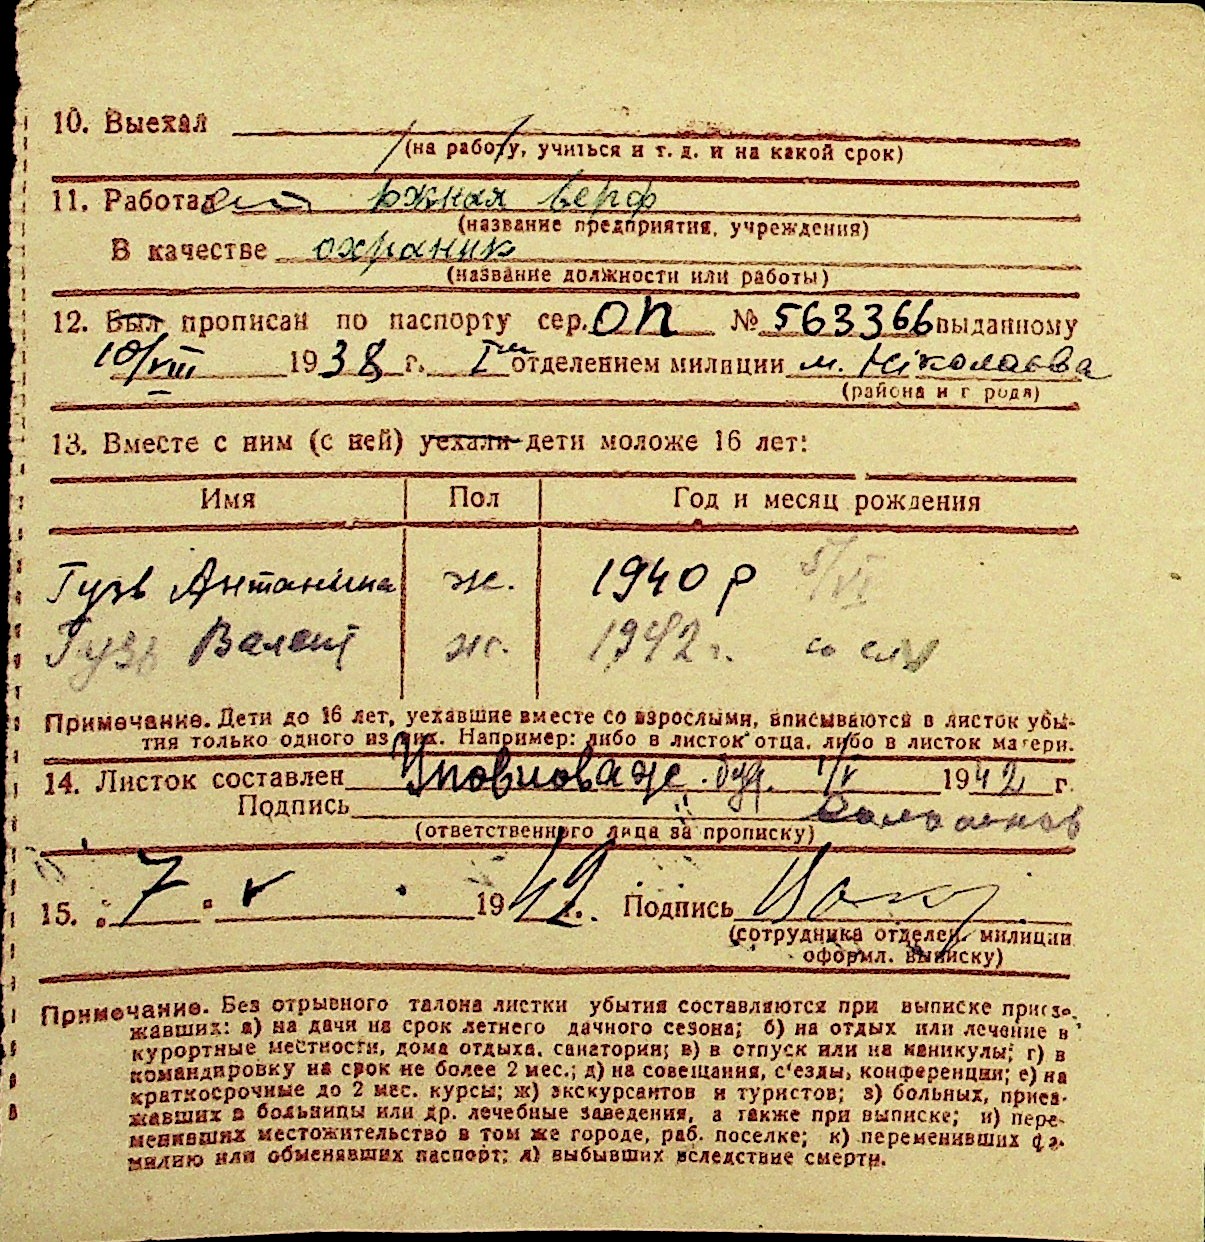 10. Выехал
(на работу, учиться и т. д. и на какой срок)
11. Работа южная верф
(название предприятия, учреждения)
В качестве охраник
(название должности или работы)
12. Был прописан по паспорту сер. ОП № 563366 выданному
10/VIII 1938 г. I отделением милиции м. Ніколаєва
(района и г рода)
13. Вместе с ним (с ней) уехали дети моложе 16 лет:
Имя Пол Год и месяц рождения
Гузь Антаніна ж. 1940 р 5/VI
Гузь Валент ж. 1942 г. со слу
Примечание. Дети до 16 лет, уехавшие вместе со взрослыми, вписываются в листок убы-
тия только одного из них. Например: либо в листок отца, либо в листок матери.
14. Листок составлен Уповноваж. буд. 1/V 1942 г.
Подпись
(ответственного лица за прописку)
15. 7 V 1942 г. Подпись
(сотрудника отделен. милиции
оформл. выписку)
Примечание. Без отрывного талона листки убытия составляются при выписке приез-
жавших: а) на дачи на срок летнего дачного сезона; б) на отдых или лечение в
курортные местности, дома отдыха, санатории; в) в отпуск или на каникулы; г) в
командировку на срок не более 2 мес.; д) на совещания, с'езды, конференции; е) на
краткосрочные до 2 мес. курсы; ж) экскурсантов и туристов; з) больных, приез-
жавших в больницы или др. лечебные заведения, а также при выписке; и) пере-
менивших местожительство в том же городе, раб. поселке; к) переменивших фа-
милию или обменявших паспорт; л) выбывших вследствие смерти.